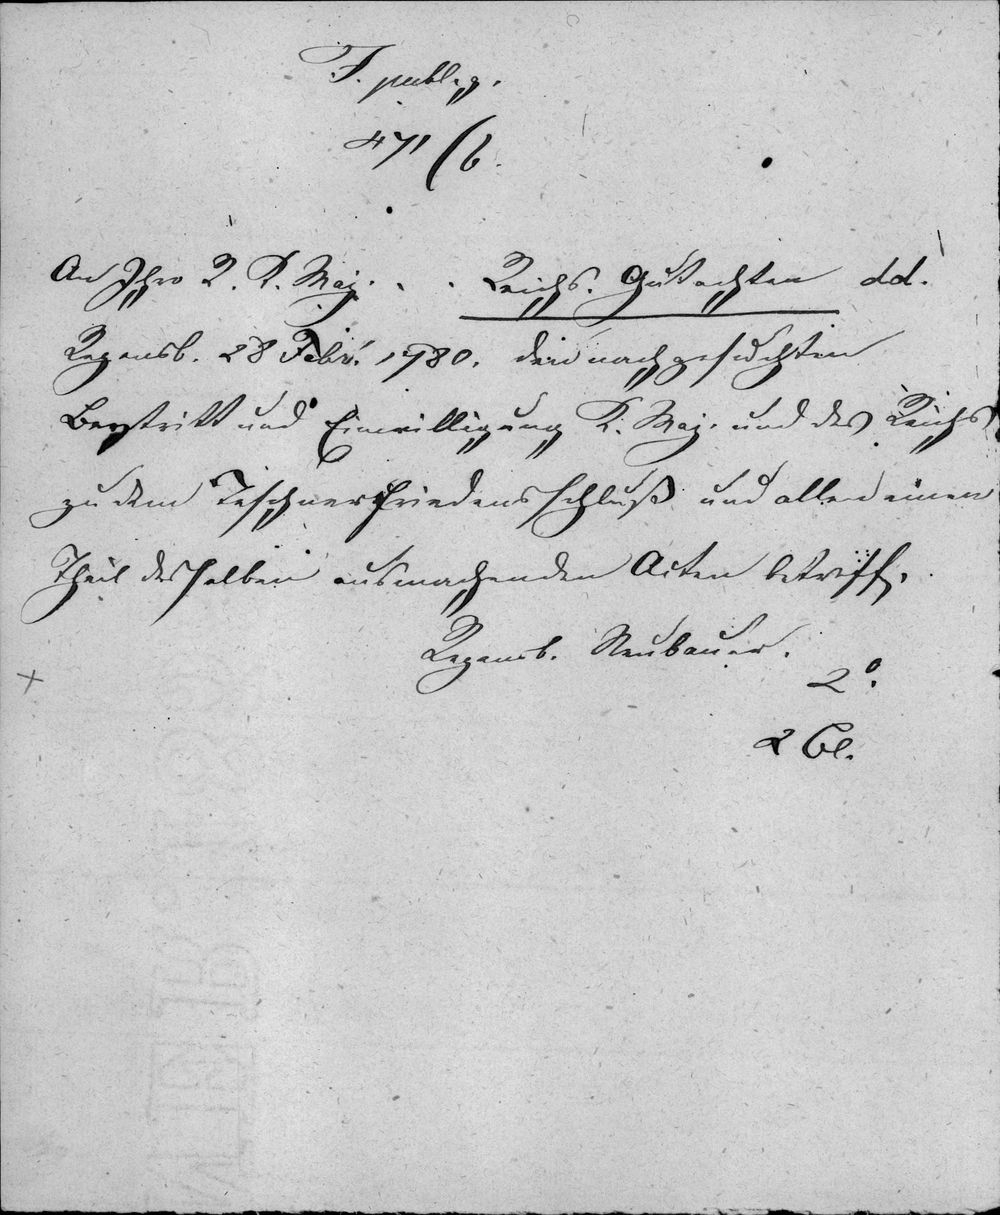 J. publ. g.
471/6.
An Ihro R. K. Maj. . . Reichs-Gutachten dd.
Regensb. 28 Febr. 1780. den nachgesuchten
Beystritt und Einwilligung K. Maj. und des Reichs
zu dem Teschner Friedensschluß und allen einen
Theil desselben ausmachenden Acten betreff.
Regensb. Neubauer.
2°.
2 Bl.